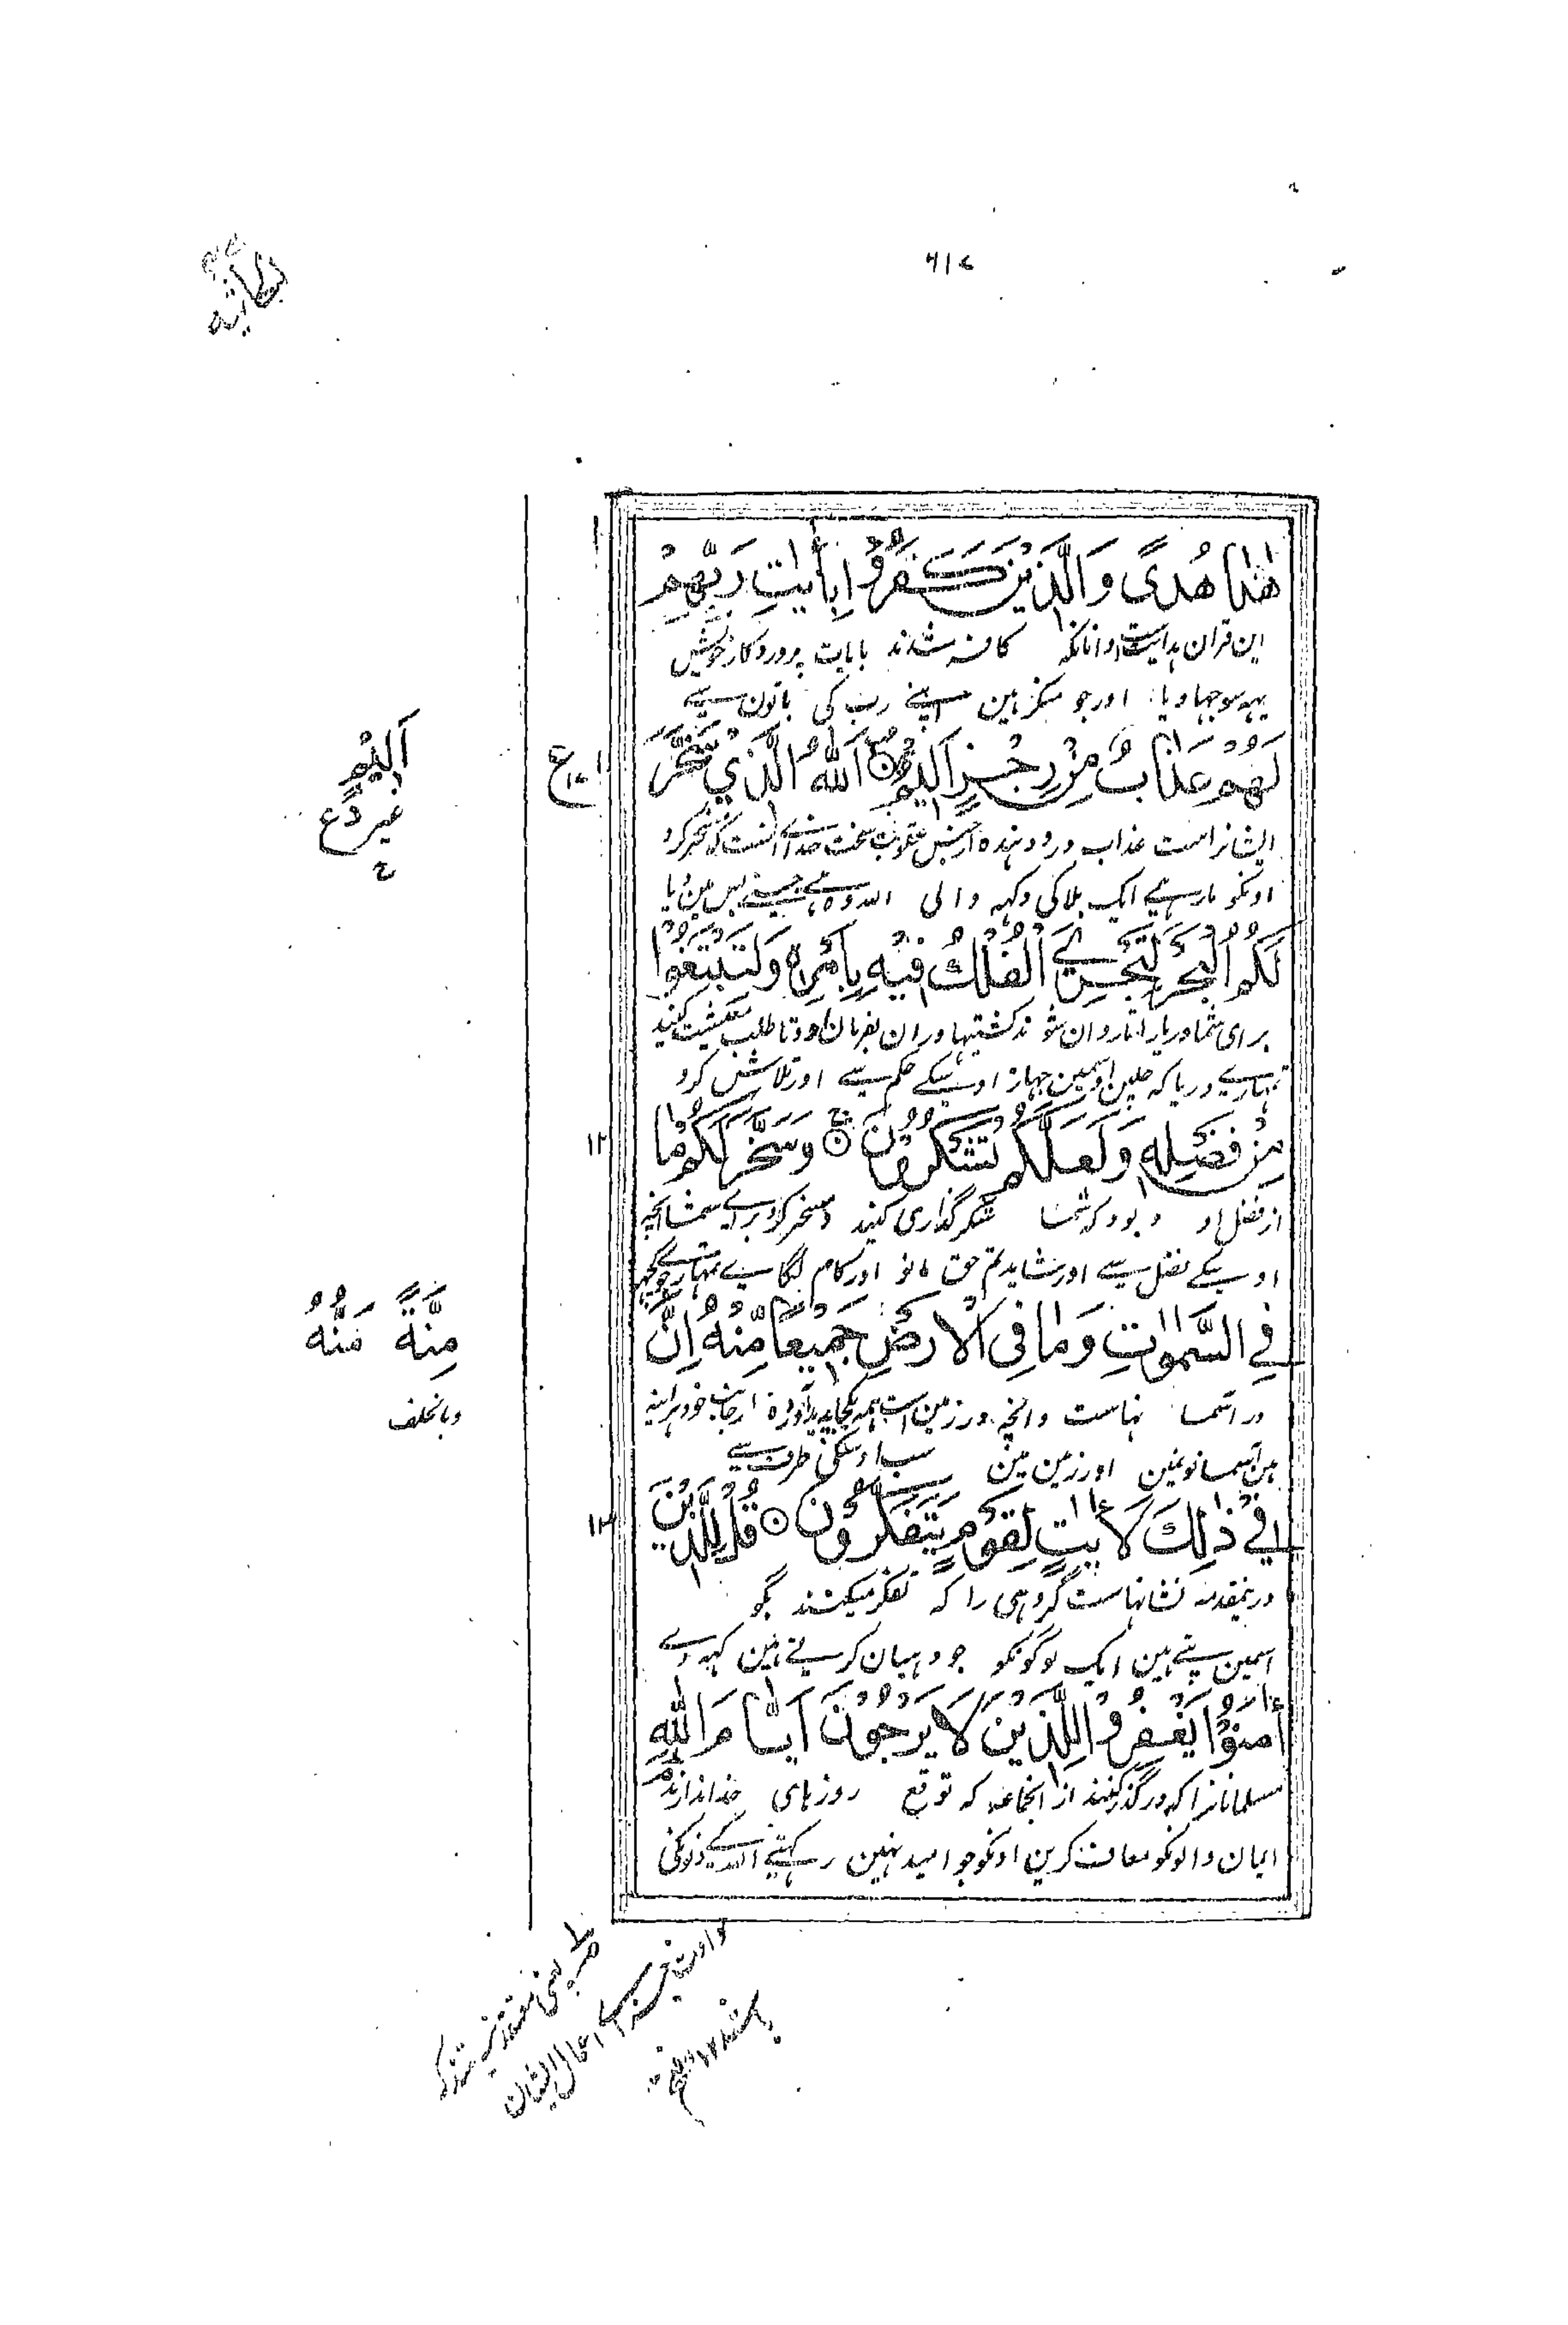 ۶۱۷
الجاثیه
هٰذَا هُدًى وَالَّذِيْنَ كَفَرُوْا بِاٰيٰتِ رَبِّهِمْ
این قران هدایت است و آنانکه کافر شدند بآیات پروردگار خویش
یہہ سوجہا دیا اور جو منکر ہین اپنے رب کی باتون سے
لَهُمْ عَذَابٌ مِّنْ رِّجْزٍ اَلِيْمٌ ۝ اَللّٰهُ الَّذِيْ سَخَّرَ
ایشانراست عذاب درد دهنده از جنس عقوبت سخت خداے آنست که مسخر کرد
اونکو مار ہے ایک بلا کی دکہہ والی اللہ وہ ہے جسنے بس مین دیا
لَكُمُ الْبَحْرَ لِتَجْرِيَ الْفُلْكُ فِيْهِ بِاَمْرِهٖ وَلِتَبْتَغُوْا
برای شما دریا را تا روان شوند کشتیها دران بفرمان او و تا طلب معیشت کنید
تمہارے دریا کہ چلین اوسمین جہاز اوسکے حکم سے اور تلاش کرو
۱۲
مِنْ فَضْلِهٖ وَلَعَلَّكُمْ تَشْكُرُوْنَ ۝ وَسَخَّرَ لَكُمْ مَّا
از فضل او و بود که شما شکر گذاری کنید و مسخر کرد براے شما آنچه
اوسکے فضل سے اور شاید تم حق مانو اور کام لگاے تمہارے جو کچہہ
فِي السَّمٰوٰتِ وَمَا فِي الْاَرْضِ جَمِيْعًا مِّنْهُ اِنَّ
در آسما نهاست و آنچه در زمین است همه یکجا پدید آورده از جانب خود هر آینه
ہین آسمانونمین اور زمین مین سب اوسکی طرف سے
۱۳
فِيْ ذٰلِكَ لَاٰيٰتٍ لِّقَوْمٍ يَّتَفَكَّرُوْنَ ۝ قُلْ لِّلَّذِيْنَ
درینمقدمه نشانهاست گروهی را که تفکر میکنند بگو
اسمین پتے ہین ایک لوگونکو جو دہیان کرتے ہین کہہ دے
اٰمَنُوْا يَغْفِرُوْا لِلَّذِيْنَ لَا يَرْجُوْنَ اَيَّامَ اللّٰهِ
مسلمانانرا که درگذر کنند از آنجماعه که توقع ندارند روزهای خدا
ایمان والونکو معاف کرین اونکو جو امید نہین رکہتے اللہ کے دنونکی
اَلِيْمٍ
غیر د ع
ح
مِنَّةً مَنُّهُ
و بالخلف